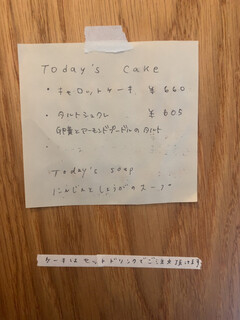 Today's Cake
・キャロットケーキ ¥660
・タルトシュクレ ¥605
アーモンドプードルのタルト
Today's soup
にんじんとしょうがのスープ
ケーキはセットドリンクとご注文頂けます